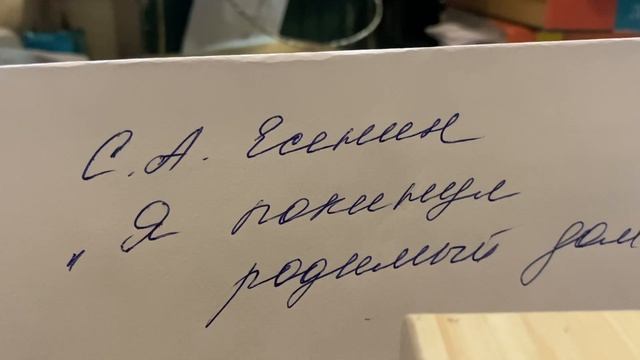 С. А. Есенин
„Я покинул
родимый дом